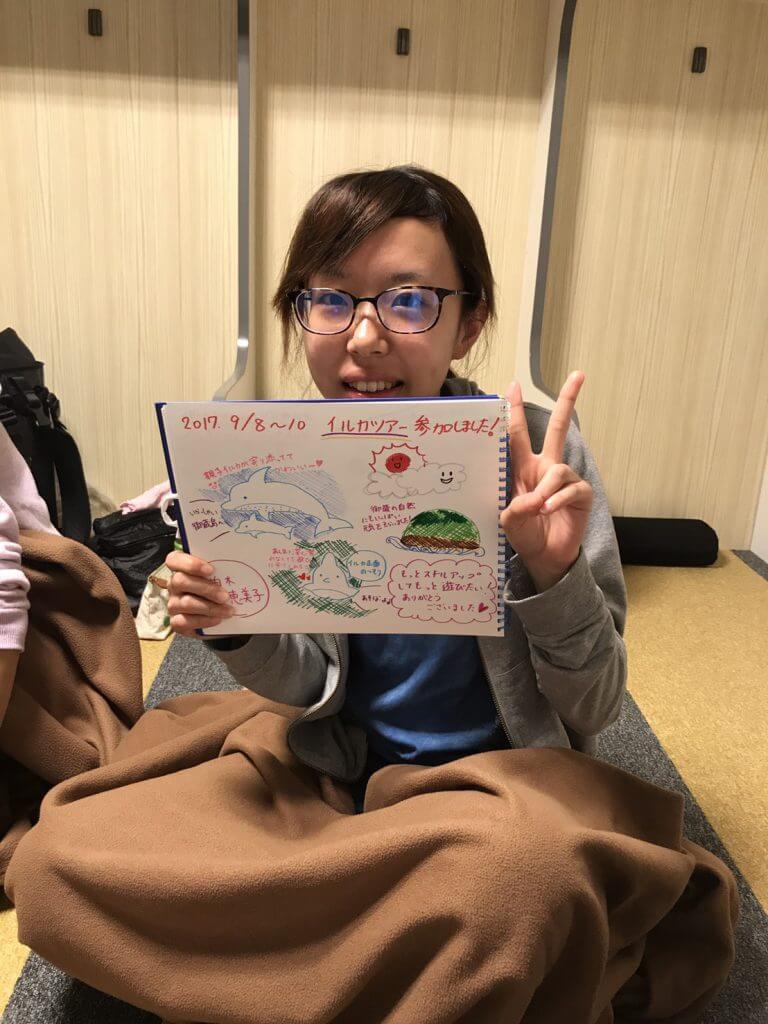 2017. 9/8〜10 イルカツアー 参加しました!
親子イルカが寄り添ってて
かわいい〜♥
御蔵島へ
御蔵の自然
にもいっぱい
イルカ正面
のつもり
あそぼーよ♪
もっとスキルアップ
してもっと遊びたい!
ありがとう
ございました♥
木
恵美子